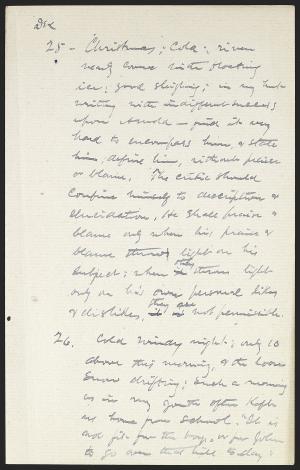 Dec
25 - Christmas; Cold; river
nearly covered with floating
ice; good sleighing; in my hut
writing with indifferent success
upon Arnold - find it very
hard to encompass him, & state
him, define him, without praise
or blame. The critic should
confine himself to description &
elucidation. He shall praise &
blame only when his praise &
blame throws light on his
subject; when they throw light
only on his own personal likes
& dislikes, they are not permissible.
26. Cold windy night; only 10
above this morning, & the loose
snow drifting; such a morning
as in my youth often kept
me home from school. "It is
not fit for the boys, or for John
to go over that hill to-day: